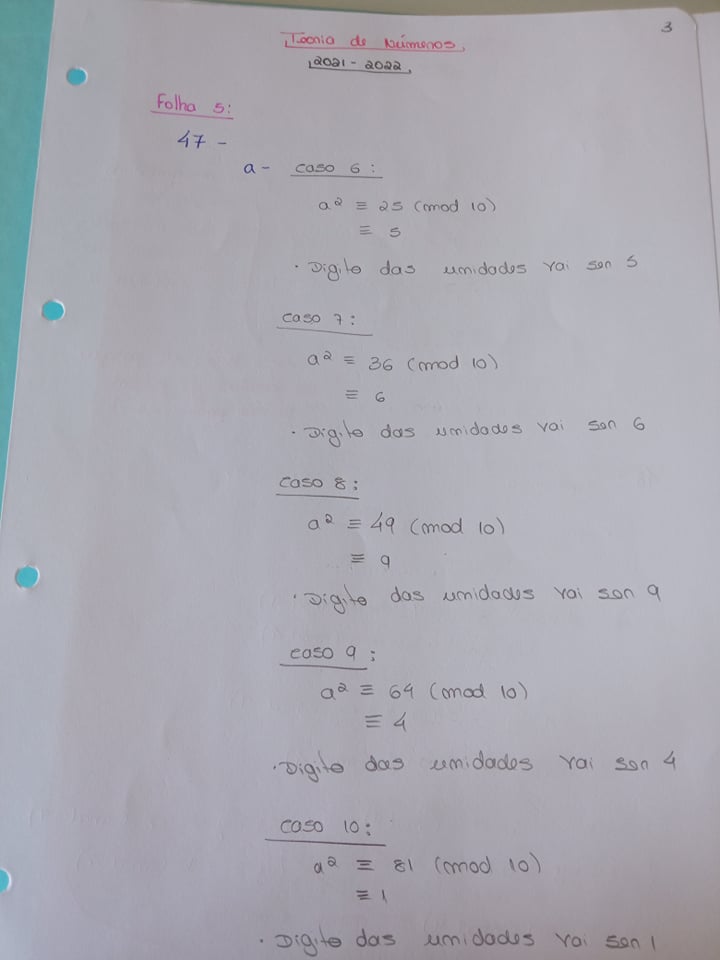 3
Teoria de Números
2021 - 2022
Folha 5:
47 -
a - caso 6:
a² ≡ 25 (mod 10)
≡ 5
· Digito das unidades vai ser 5
caso 7:
a² ≡ 36 (mod 10)
≡ 6
· Digito das unidades vai ser 6
caso 8:
a² ≡ 49 (mod 10)
≡ 9
· Digito das unidades vai ser 9
caso 9:
a² ≡ 64 (mod 10)
≡ 4
· Digito das unidades vai ser 4
caso 10:
a² ≡ 81 (mod 10)
≡ 1
· Digito das unidades vai ser 1